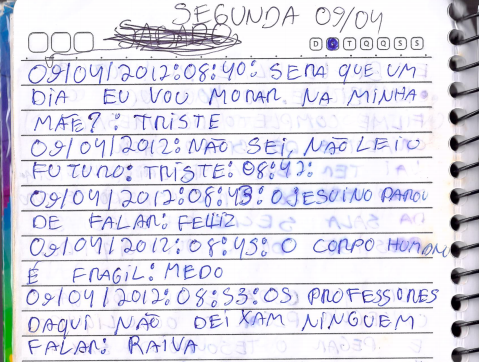 SEGUNDA 09/04
SÁBADO
D S T Q Q S S
09/04/2012:08:40: SERA QUE UM
DIA EU VOU MORAR NA MINHA
MÃE?: TRISTE
09/04/2012: NÃO SEI, NÃO LEIO
FUTURO: TRISTE: 08:42:
09/04/2012:08:43: O JESUINO PAROU
DE FALAR: FELIZ
09/04/2012:08:45: O CORPO HUMANO
É FRAGIL: MEDO
09/04/2012:08:53: OS PROFESSORES
DAQUI NÃO DEIXAM NINGUEM
FALAR: RAIVA